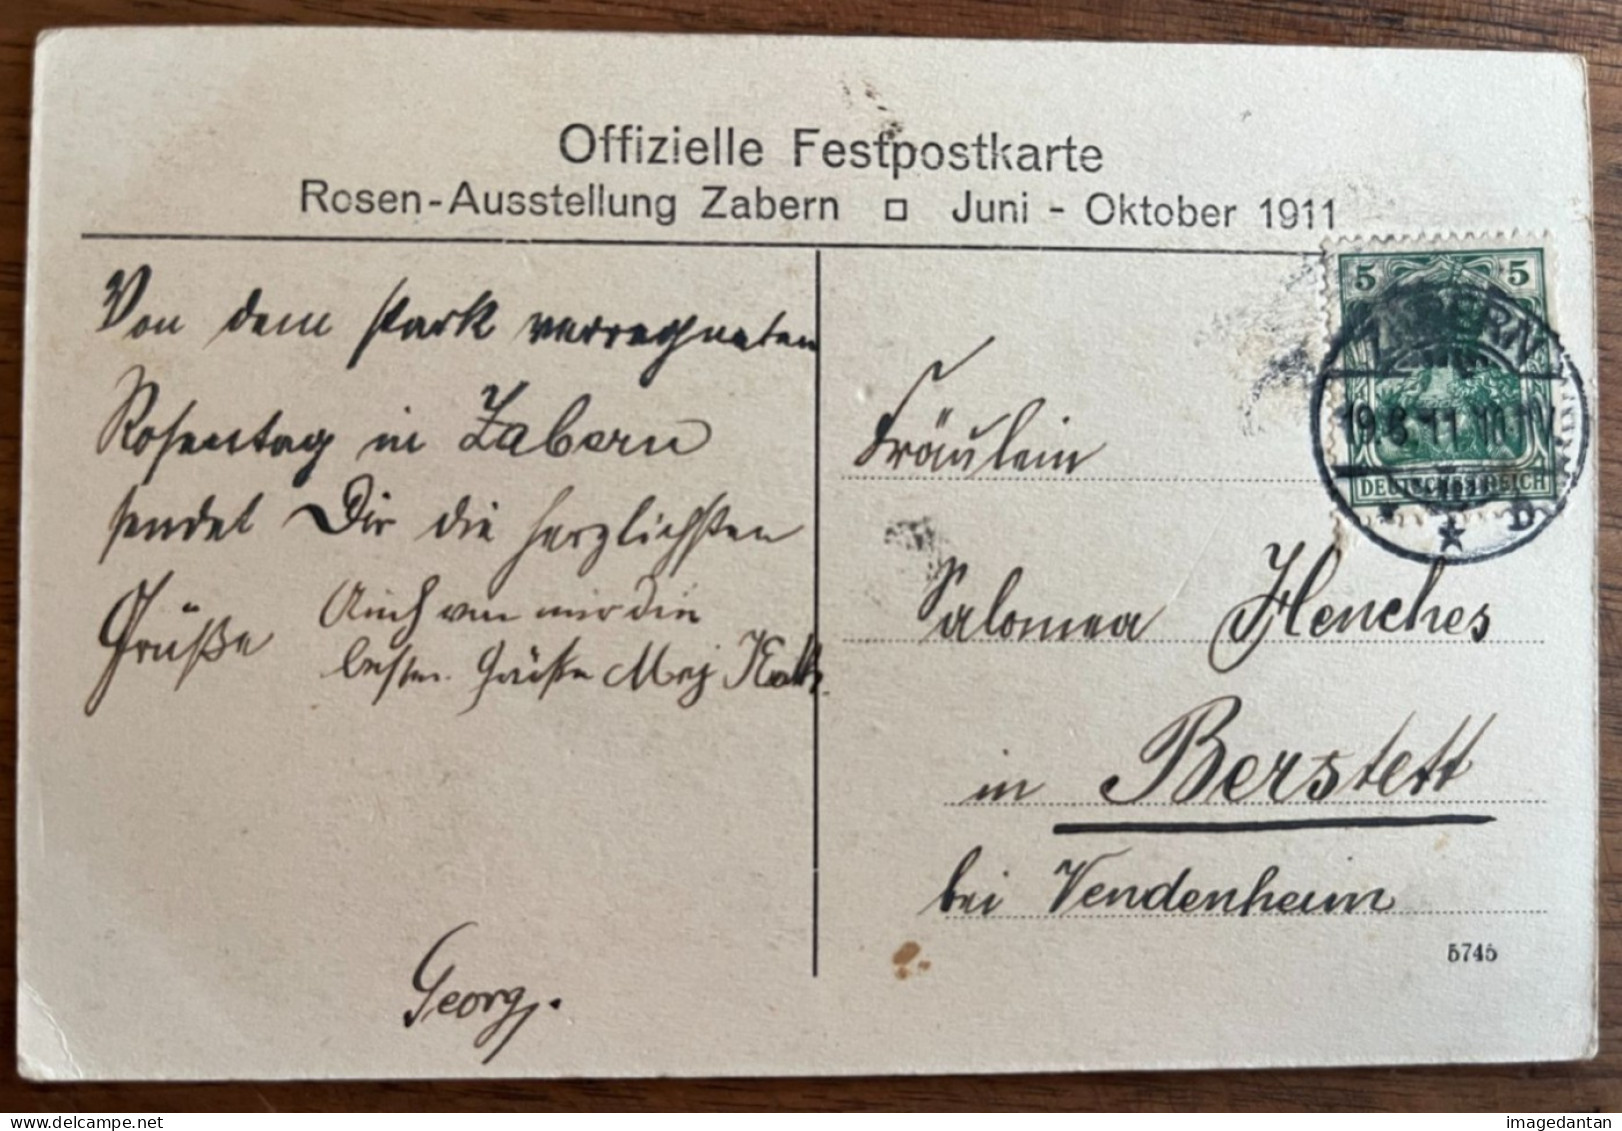 Offizielle Festpostkarte
Rosen-Ausstellung Zabern □ Juni - Oktober 1911
Von dem stark verregneten
Rosentag in Zabern
sendet Dir die herzlichsten
Grüße
Auch von mir die
besten Grüße
Georg.
5 5
ZABERN
19.6.11.
DEUTSCHES REICH
* * b
Fräulein
Salomea Henches
in Berstett
bei Vendenheim
5745
imagedantan